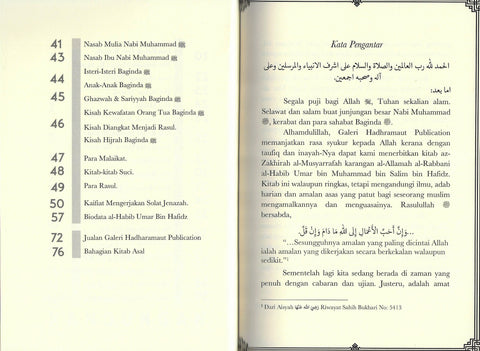 41 Nasab Mulia Nabi Muhammad ﷺ
43 Nasab Ibu Nabi Muhammad ﷺ
44 Isteri-Isteri Baginda ﷺ
Anak-Anak Baginda ﷺ
45 Ghazwah & Sariyyah Baginda ﷺ
46 Kisah Kewafatan Orang Tua Baginda ﷺ
Kisah Diangkat Menjadi Rasul.
Kisah Hijrah Baginda ﷺ
47 Para Malaikat.
48 Kitab-kitab Suci.
49 Para Rasul.
50 Kaifiat Mengerjakan Solat Jenazah.
57 Biodata al-Habib Umar Bin Hafidz
72 Jualan Galeri Hadharamaut Publication
76 Bahagian Kitab Asal
Kata Pengantar
الحمد لله رب العالمين والصلاة والسلام على اشرف الانبياء والمرسلين وعلى
آله وصحبه اجمعين.
اما بعد:
Segala puji bagi Allah ﷻ, Tuhan sekalian alam.
Selawat dan salam buat junjungan besar Nabi Muhammad
ﷺ, kerabat dan para sahabat Baginda ﷺ.
Alhamdulillah, Galeri Hadhramaut Publication
memanjatkan rasa syukur kepada Allah kerana dengan
taufiq dan inayah-Nya dapat kami menerbitkan kitab az-
Zakhirah al-Musyarrafah karangan al-Allamah al-Rabbani
al-Habib Umar bin Muhammad bin Salim bin Hafidz.
Kitab ini walaupun ringkas, tetapi mengandungi ilmu, adab
harian dan amalan asas yang patut bagi seseorang muslim
mengamalkannya dan menguasainya. Rasulullah ﷺ
bersabda,
...وَإِنَّ أَحَبَّ الْأَعْمَالِ إِلَى اللَّهِ مَا دَامَ وَإِنْ قَلَّ.
“...Sesungguhnya amalan yang paling dicintai Allah
ialah amalan yang dikerjakan secara berkekalan walaupun
sedikit.”¹
Sementelah lagi kita sedang berada di zaman yang
penuh dengan cabaran dan ujian. Justeru, adalah amat
¹ Dari Aisyah رضي الله عنها Riwayat Sahih Bukhari No: 5413